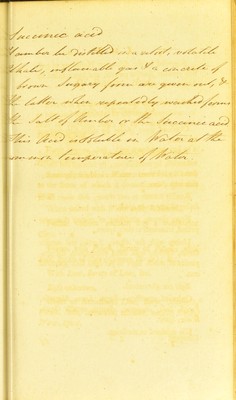 Succinic acid
If amber be distilled in a retort, volatile
alkali, inflammable gas & a concrete of
brown Sugary form are given out, &
the latter when repeatedly washed forms
the Salt of Amber or the Succinic acid
This Acid is soluble in Water at the
common temperature of Water